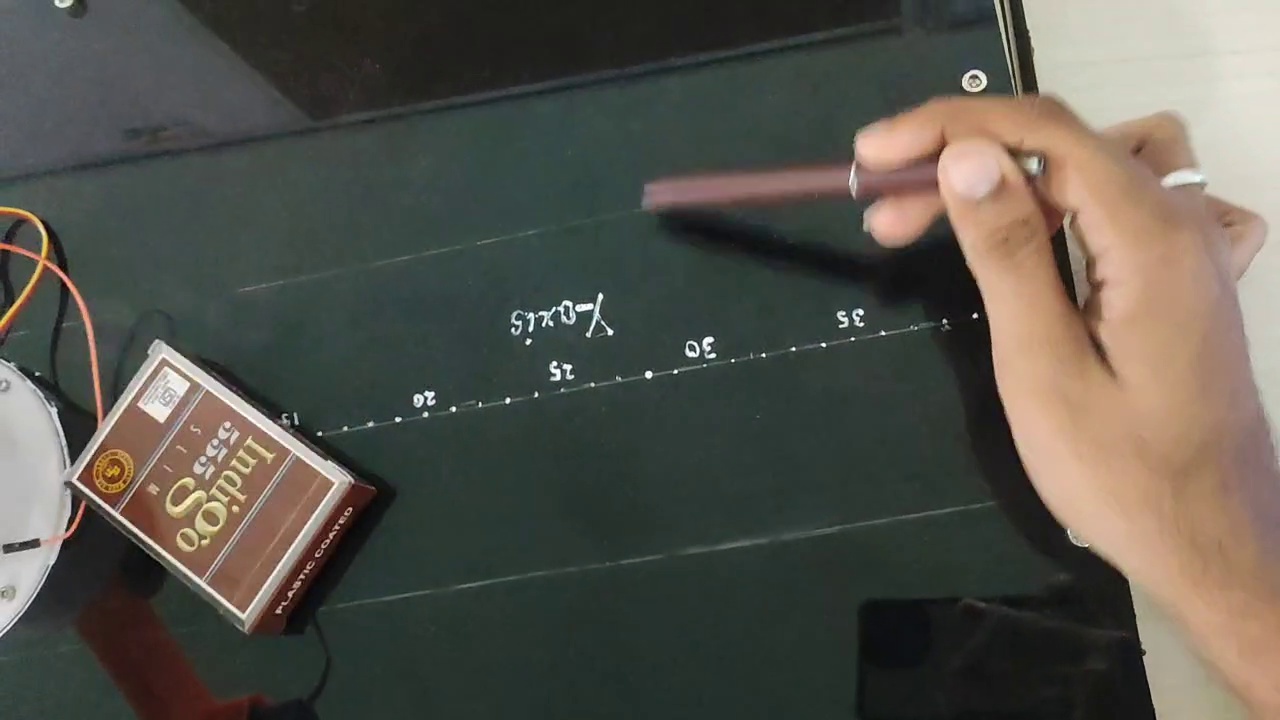 Y-axis
15
20
25
30
35
Indigo
555
SLIM
PLASTIC COATED